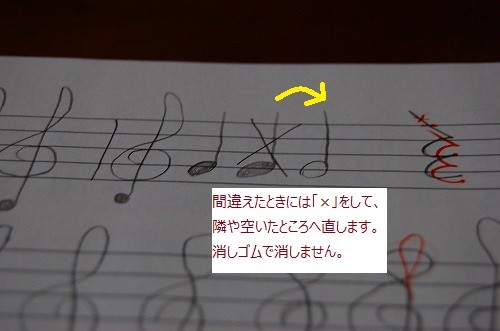 間違えたときには「×」をして、
隣や空いたところへ直します。
消しゴムで消しません。